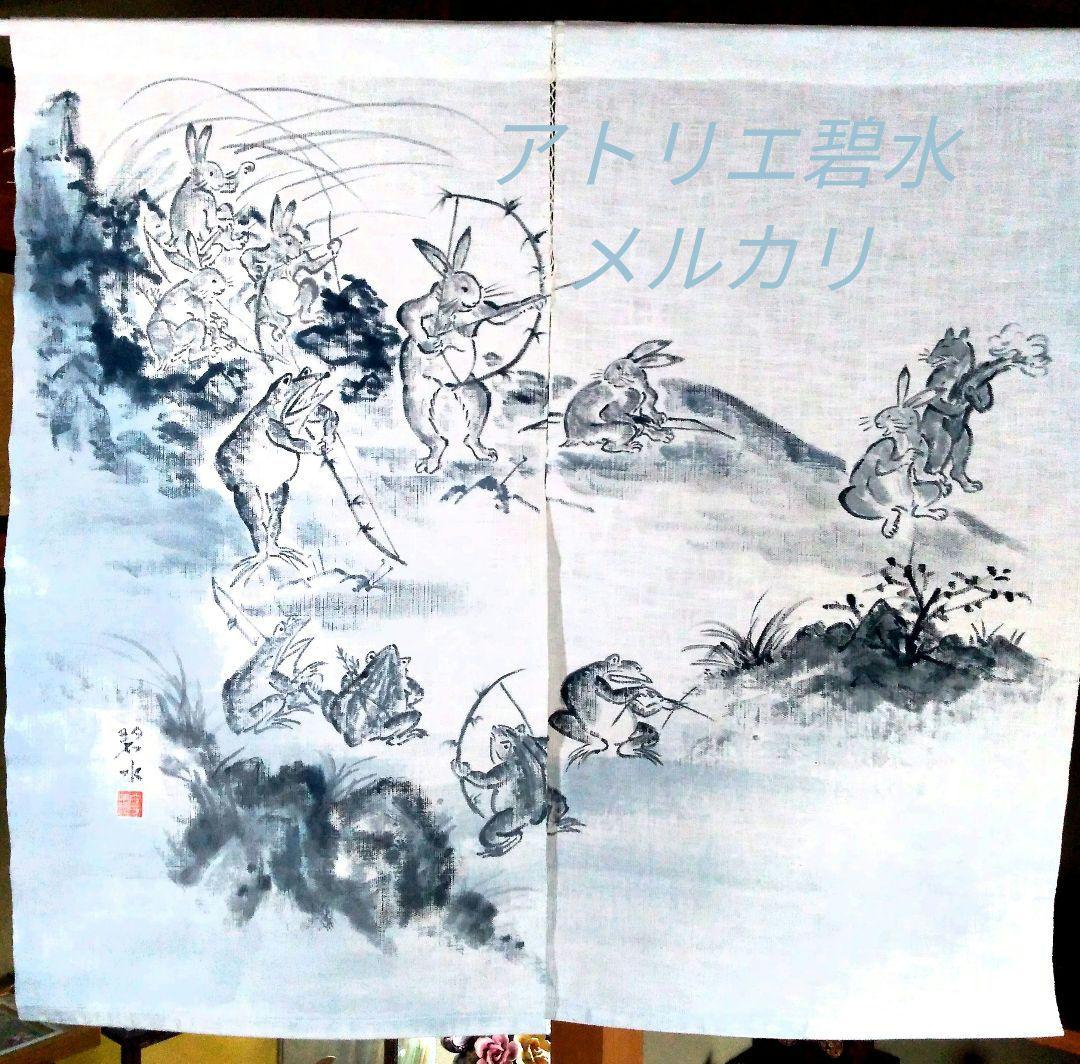 アトリエ碧水
メルカリ
碧水